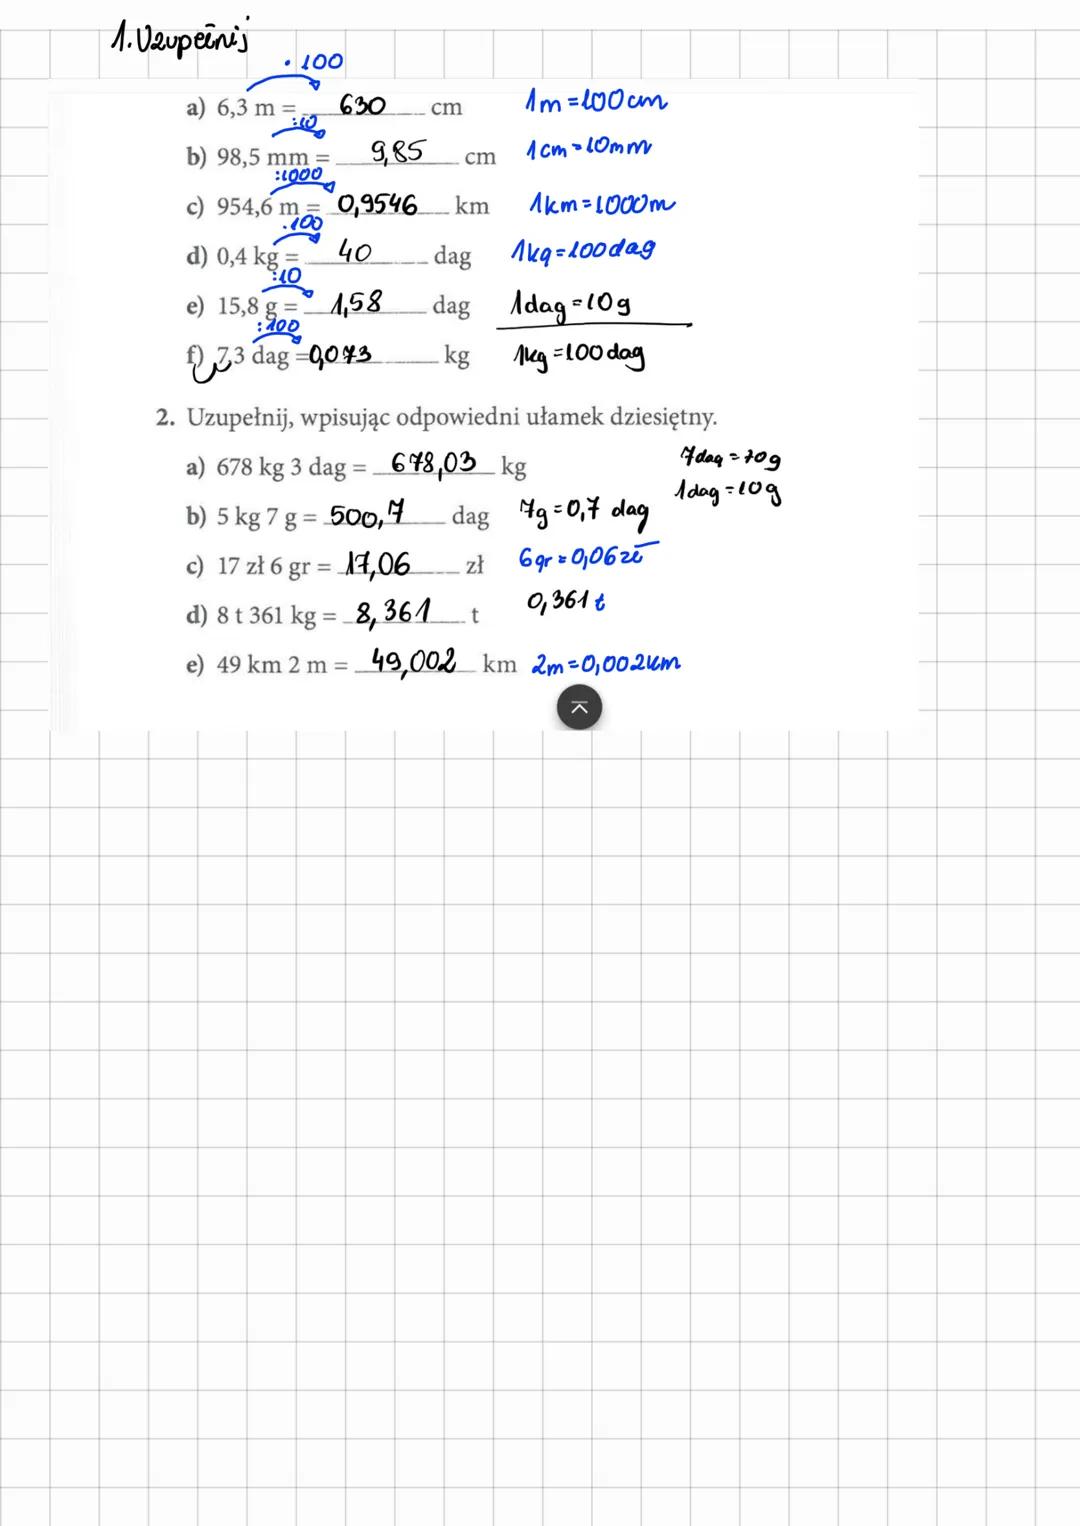 1. Uzupełnij
· 100
a) 6,3 m = 630 cm 1m = 100cm
:10
b) 98,5 mm = 9,85 cm 1cm = 10mm
:1000
c) 954,6 m = 0,9546 km 1km = 1000m
·100
d) 0,4 kg = 40 dag 1kg = 100dag
:10
e) 15,8 g = 1,58 dag 1dag = 10g
:100
f) 7,3 dag = 0,073 kg 1kg = 100 dag
2. Uzupełnij, wpisując odpowiedni ułamek dziesiętny.
a) 678 kg 3 dag = 678,03 kg 7dag = 70g
1dag = 10g
b) 5 kg 7 g = 500,7 dag 7g = 0,7 dag
c) 17 zł 6 gr = 17,06 zł 6gr = 0,06zł
d) 8 t 361 kg = 8,361 t 0,361 t
e) 49 km 2 m = 49,002 km 2m = 0,002km